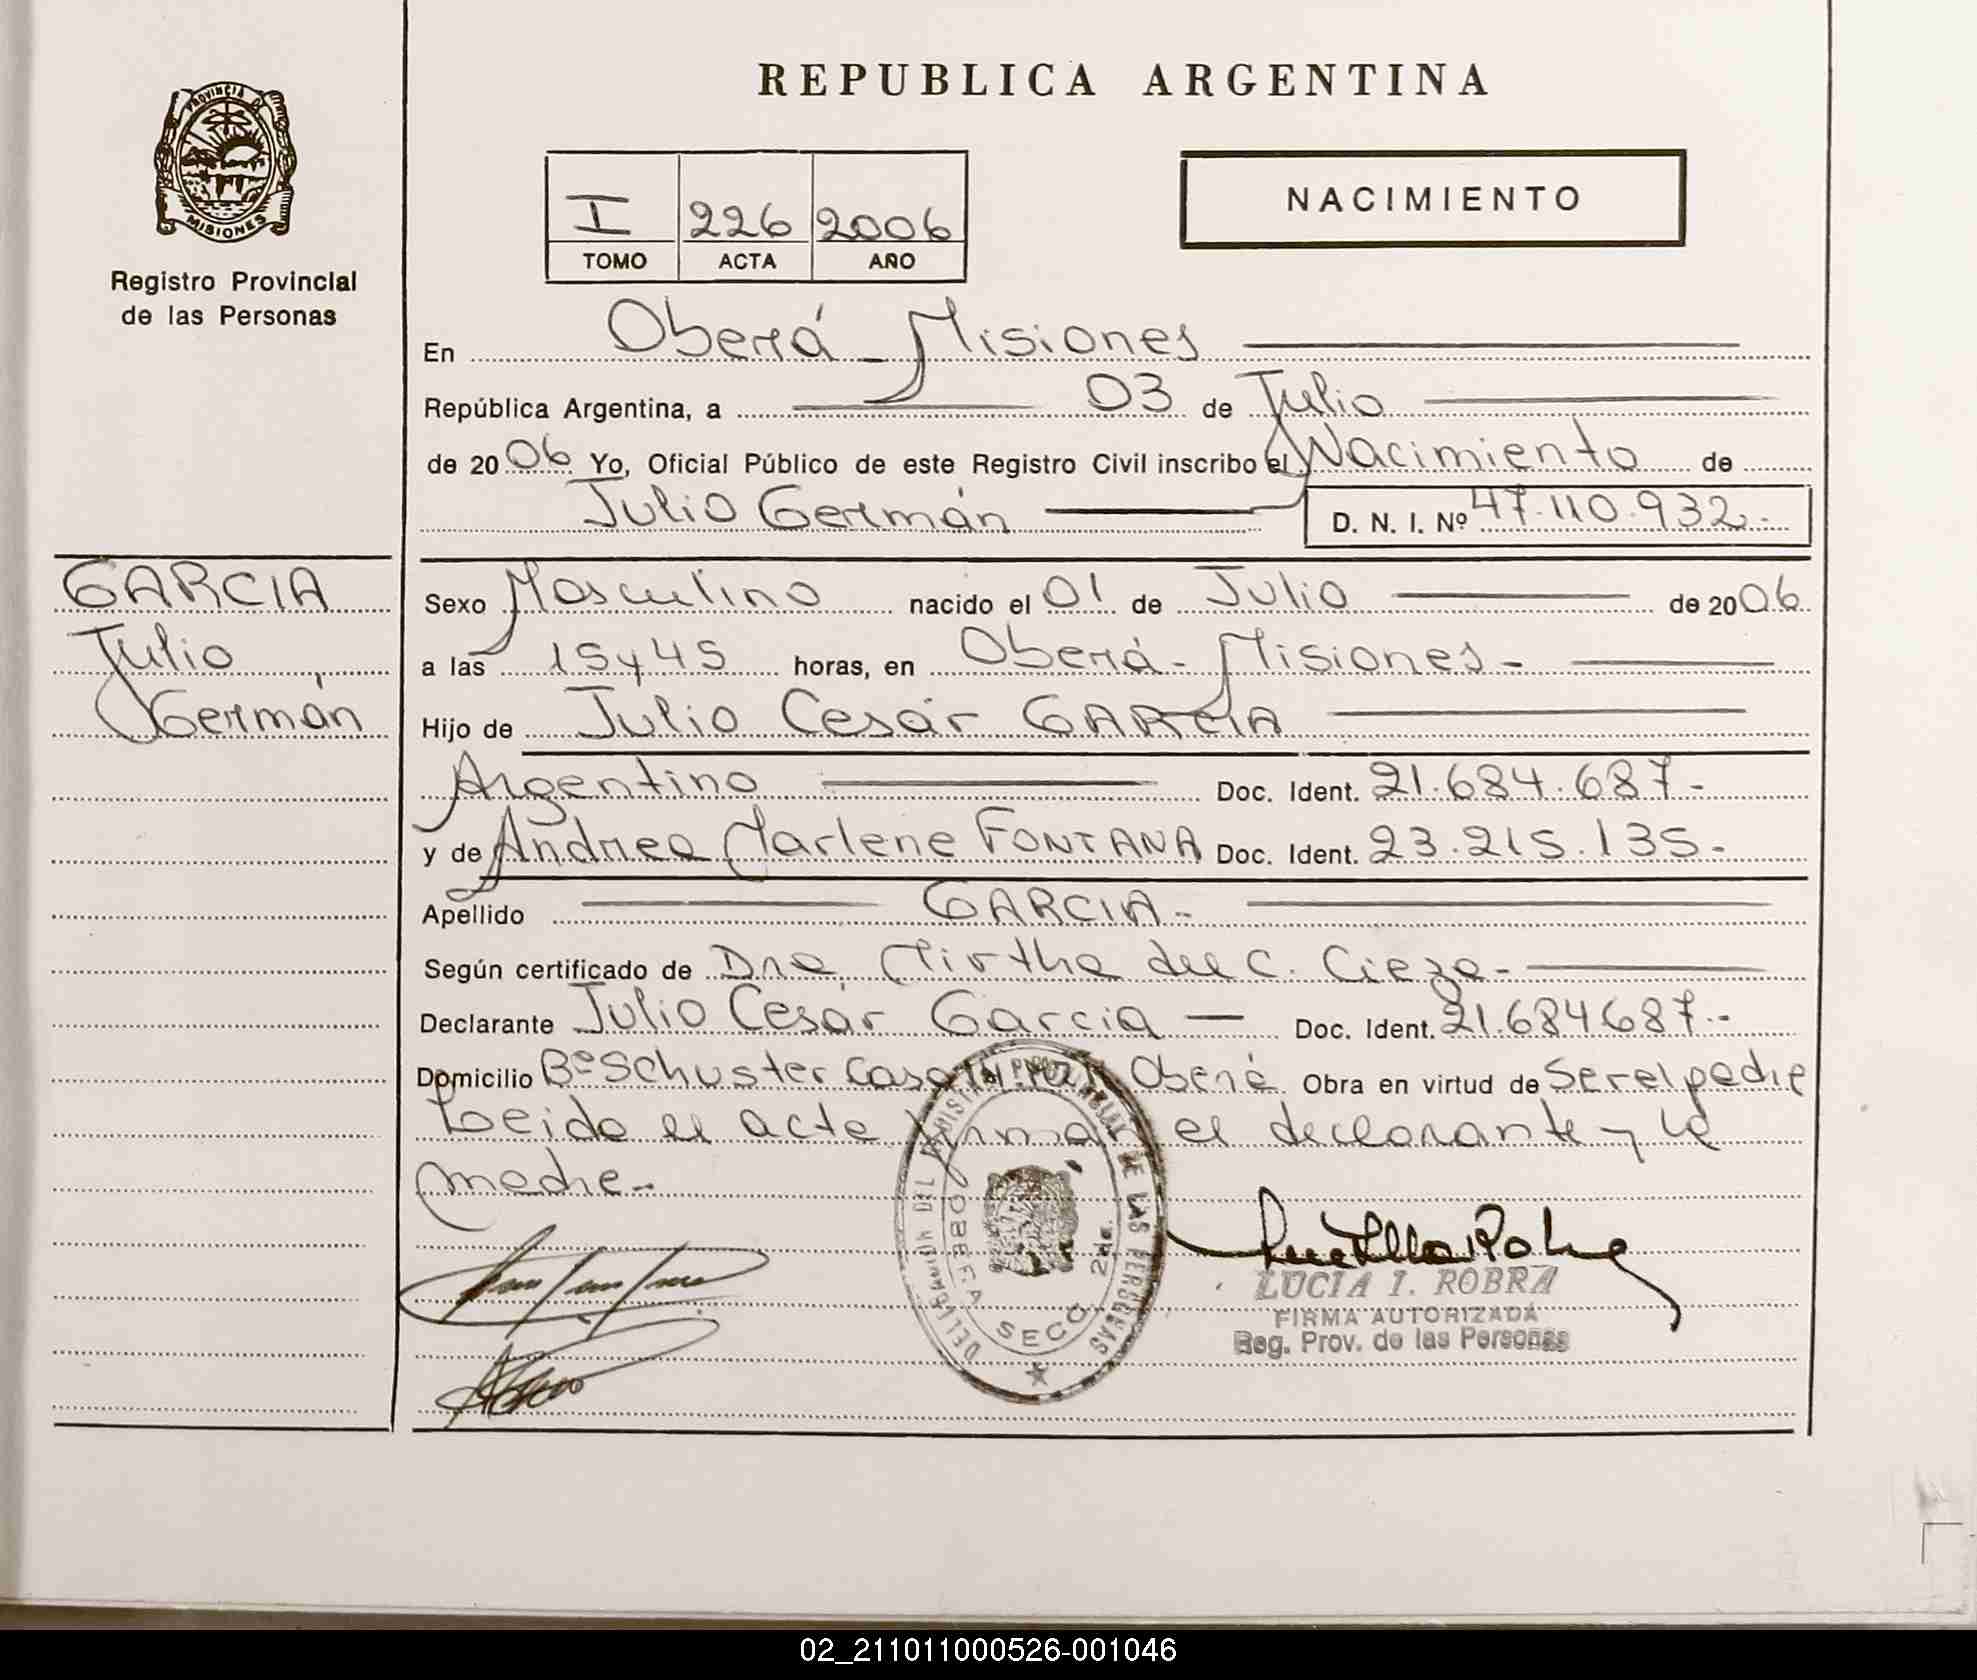 REPUBLICA ARGENTINA
PROVINCIA DE
MISIONES
Registro Provincial
de las Personas
NACIMIENTO
I 226 2006
TOMO ACTA AÑO
En Oberá - Misiones
República Argentina, a 03 de Julio
de 2006 Yo, Oficial Público de este Registro Civil inscribo el Nacimiento de
Julio Germán D. N. I. Nº 47.110.932.-
GARCIA
Julio
Germán
Sexo Masculino nacido el 01 de Julio de 2006
a las 15 y 45 horas, en Oberá - Misiones -
Hijo de Julio Cesár GARCIA
Argentino Doc. Ident. 21.684.687.-
y de Andrea Marlene FONTANA Doc. Ident. 23.215.135.-
Apellido GARCIA.-
Según certificado de Dra. Mirtha del C. Cieza.-
Declarante Julio Cesár Garcia — Doc. Ident. 21.684687.-
Domicilio Bº Schuster Casa Oberá Obra en virtud de Ser el padre
Leida el acta firman el declarante y la
madre.-
DE LAS PERSONAS
SECC 2da.
LUCIA I. ROBRA
FIRMA AUTORIZADA
Reg. Prov. de las Personas
02_211011000526-001046